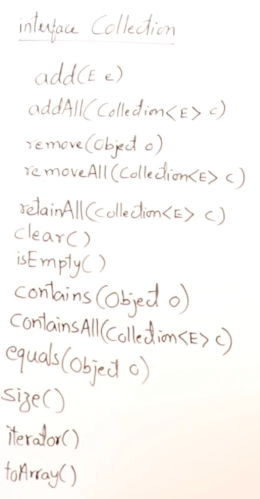 interface Collection
add(E e)
addAll(Collection<E> c)
remove(Object o)
removeAll(Collection<E> c)
retainAll(Collection<E> c)
clear()
isEmpty()
contains(Object o)
containsAll(Collection<E> c)
equals(Object o)
size()
iterator()
toArray()